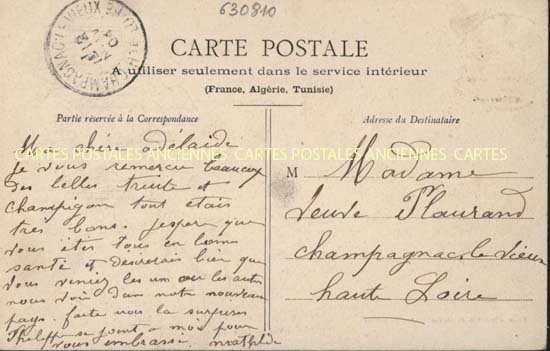 630810
CHAMPAGNAC-LE-VIEUX
CARTE POSTALE
A utiliser seulement dans le service intérieur
(France, Algérie, Tunisie)
Partie réservée à la Correspondance
Ma chère adélaide
je vous remercie beaucoup
des belles truite et
champignon tout étais
très bons. jesper que
vous êtes tous en bonne
santé et désirerais bien que
vous veniez les uns ou les autres
nous voir dan notre nouveau
pays. faite nous la surprise
Philippe se joint a moi pour
vous embrasse. mathilde
Adresse du Destinataire
M Madame
veuve Plaurand
champagnac le vieux
haute Loire
CARTES POSTALES ANCIENNES CARTES POSTALES ANCIENNES CARTES